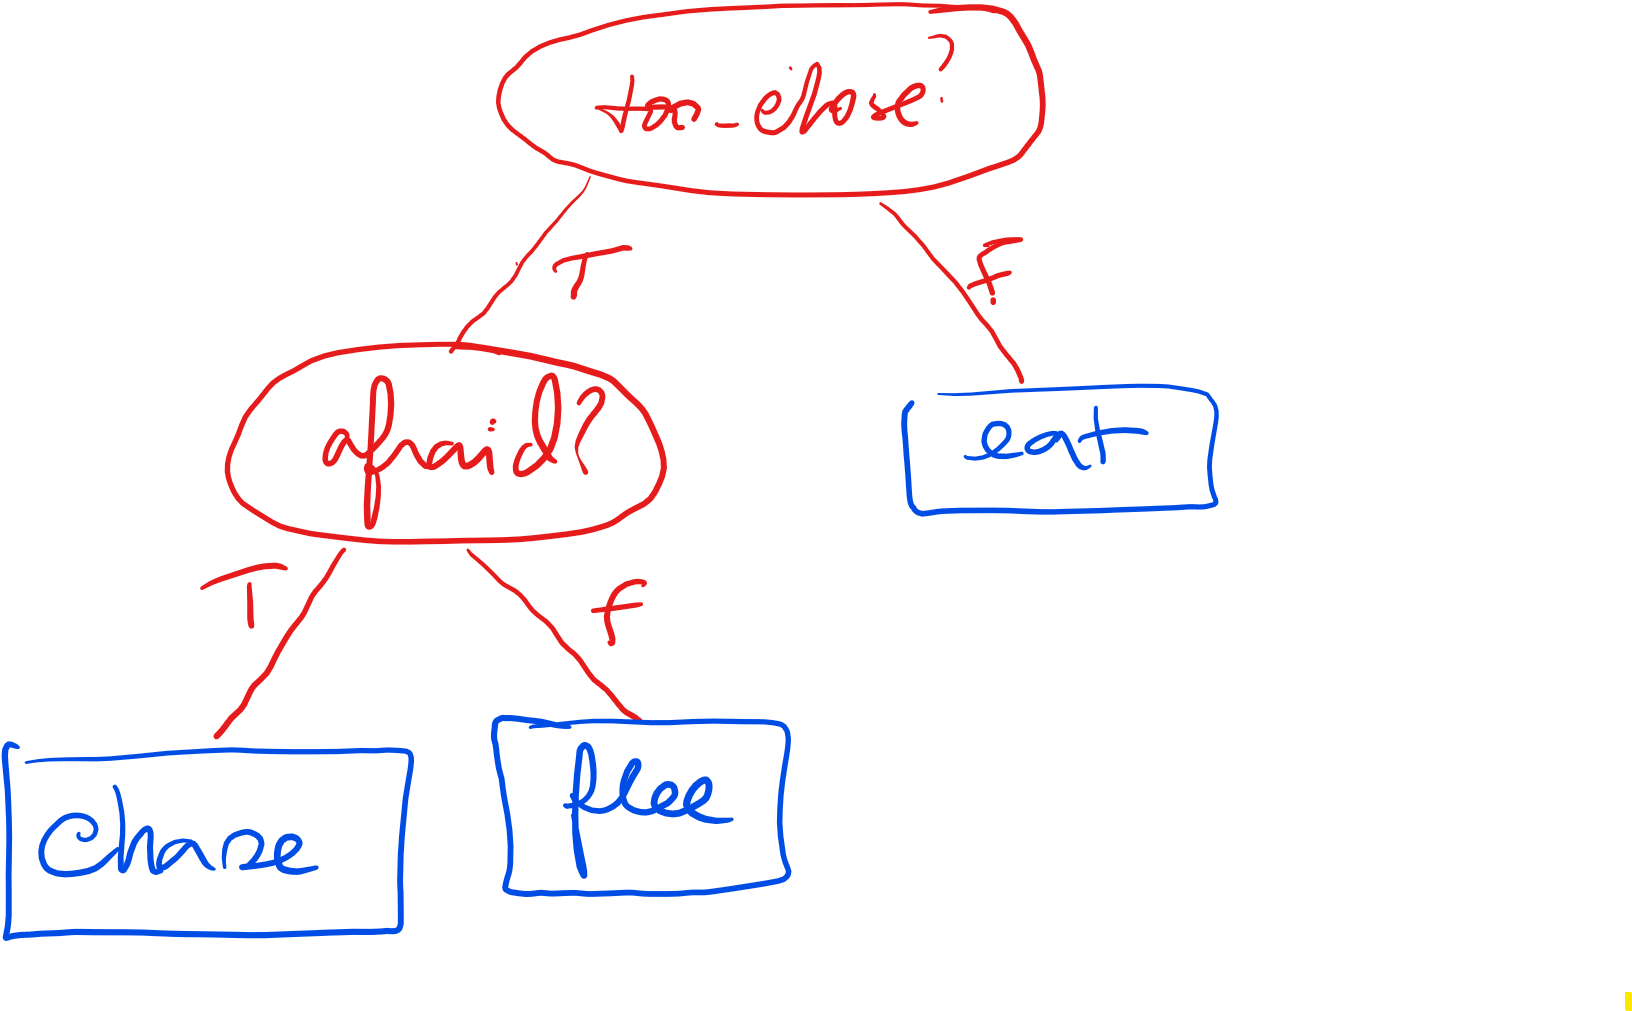 too_close?
T
F
afraid?
eat
T
F
chase
flee